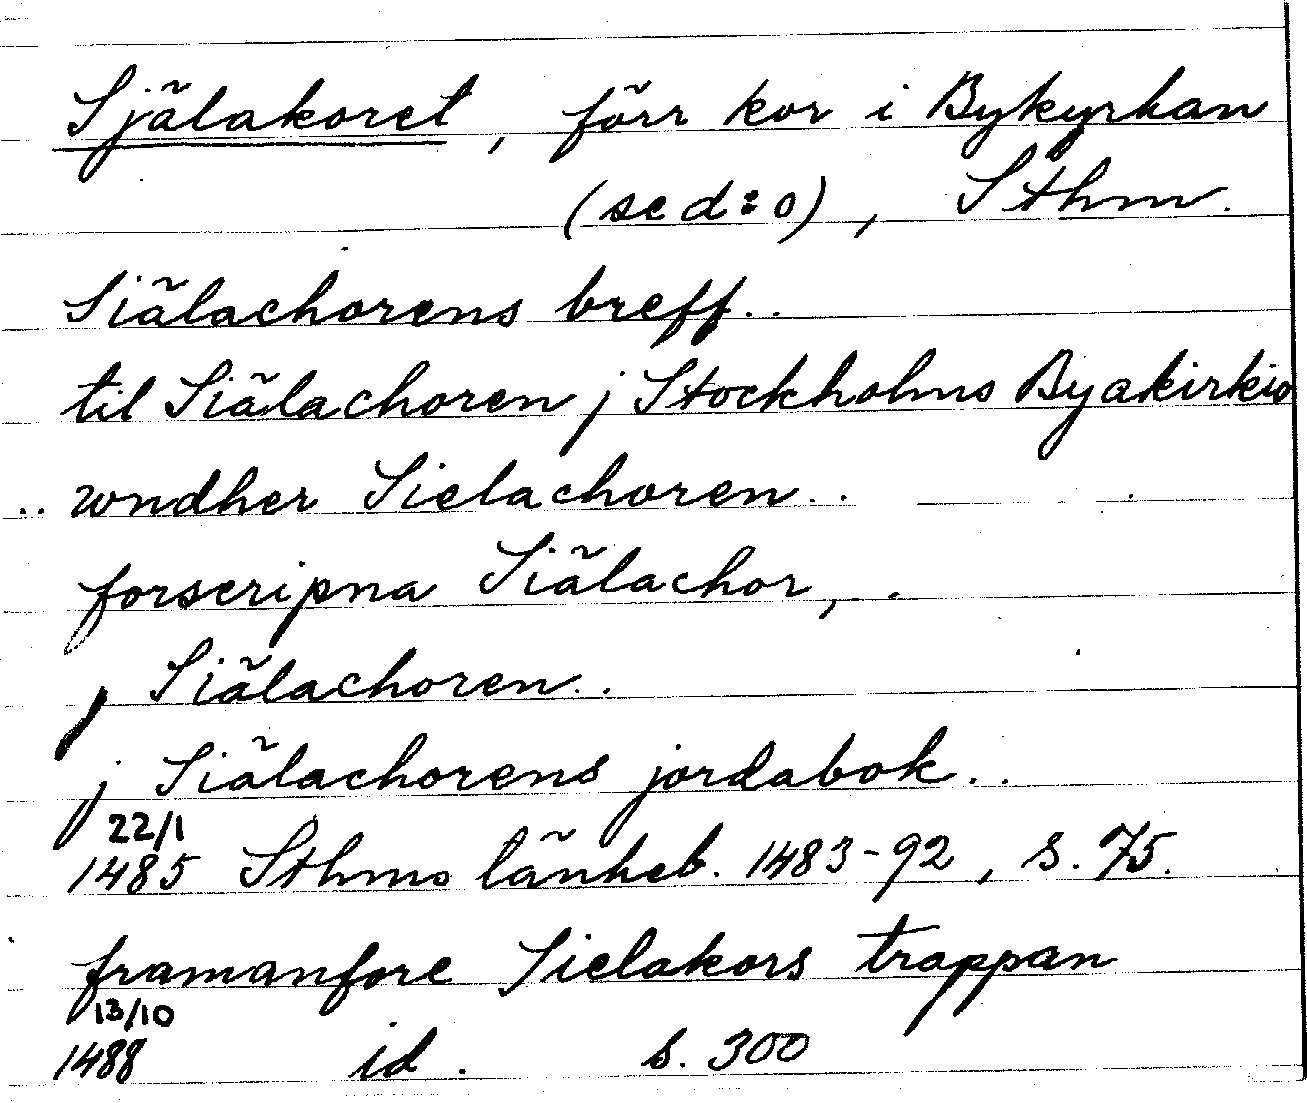 Själakoret, förr kor i Bykyrkan
(se d:o), Sthm.
Siälachorens breff..
til Siälachoren j Stockholms Byakirkio
.. wndher Sielachoren..
forscripna Siälachor, .
j Siälachoren..
j Siälachorens jordabok..
22/1
1485 Sthms tänkeb. 1483-92, s. 75.
framanfore Sielakors trappan
13/10
1488 id. s. 300